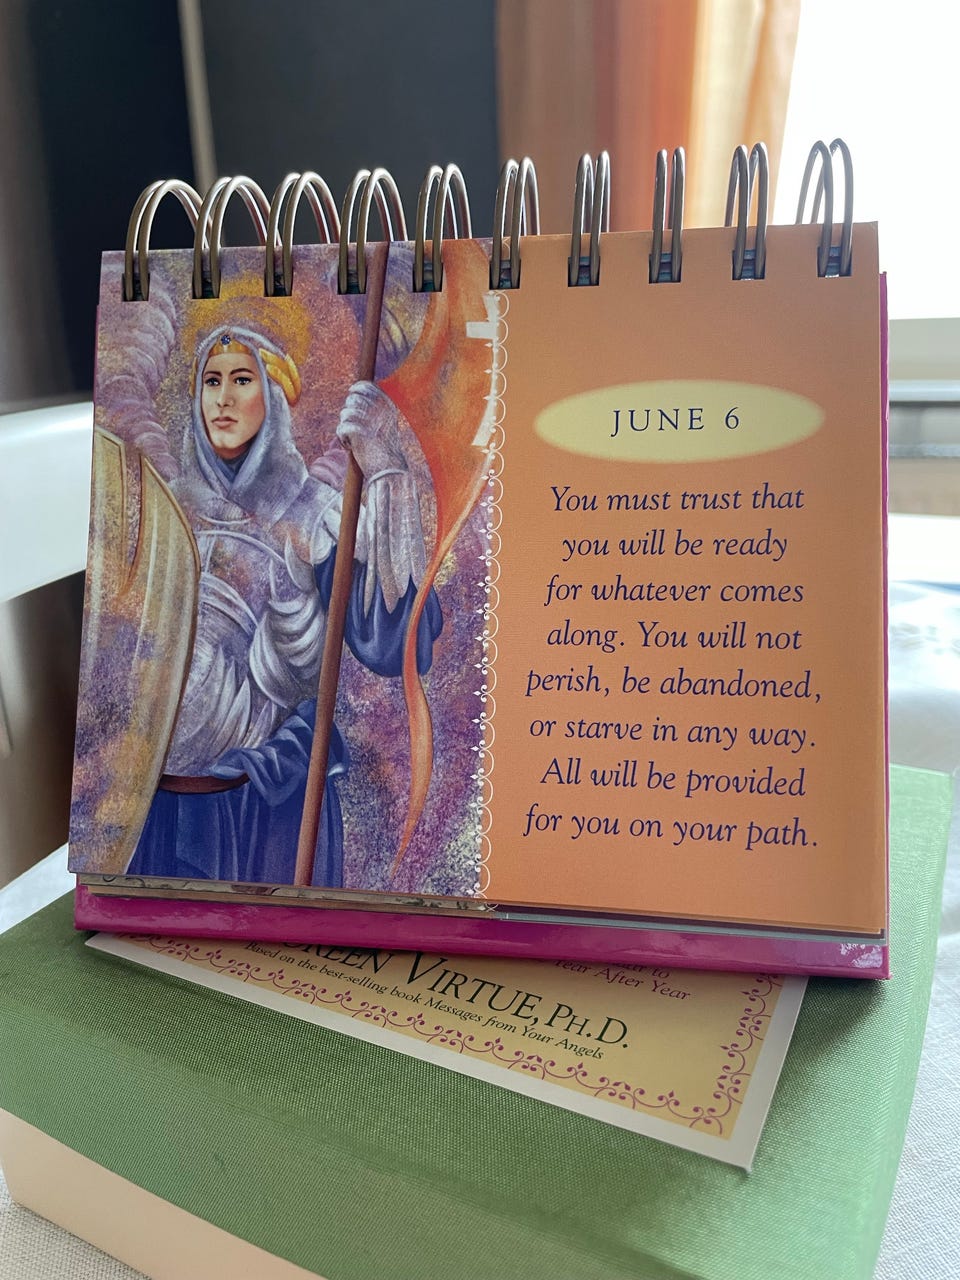 JUNE 6
You must trust that
you will be ready
for whatever comes
along. You will not
perish, be abandoned,
or starve in any way.
All will be provided
for you on your path.
to
Year After Year
VIRTUE, PH.D.
Based on the best-selling book Messages from Your Angels